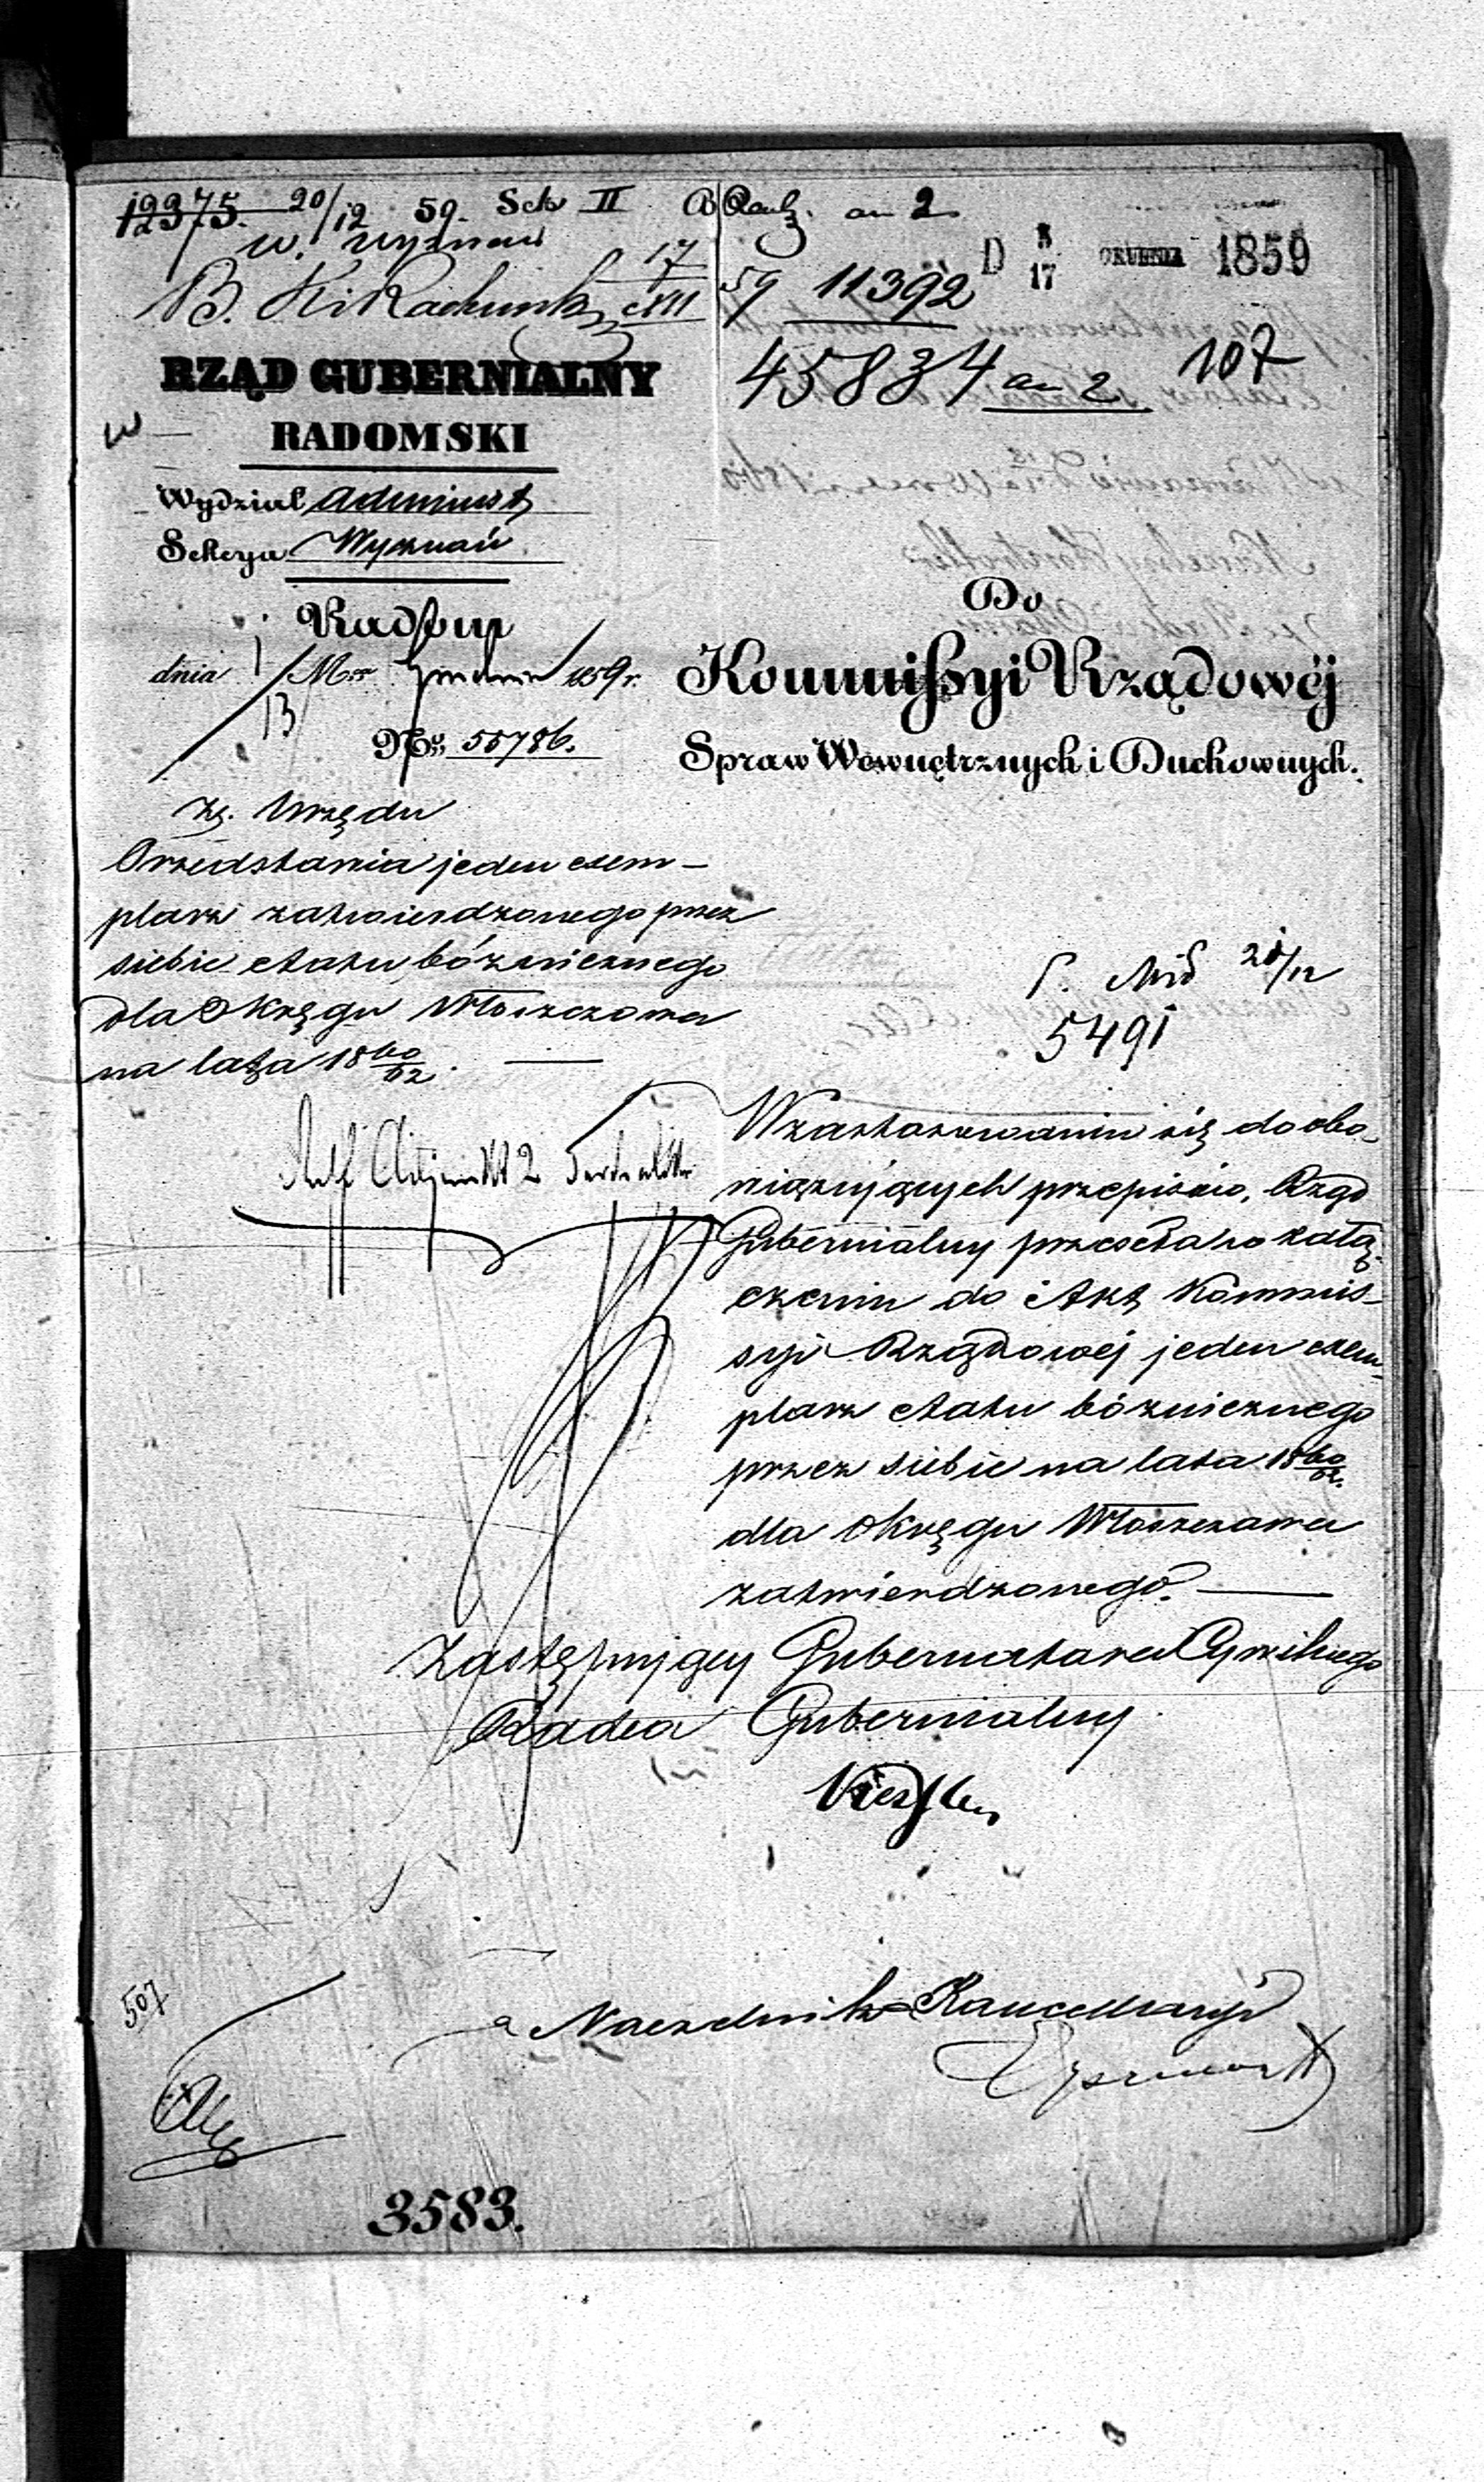 12375. 20/12 59. Sek II
an 2
w. wyznań
17/XII
59 11392
D 5/17 GRUDNIA 1859
45834 an 2
107
RZĄD GUBERNIALNY
RADOMSKI
Wydział Administ
Sekcya Wyznań
Radom
dnia 1/13 Mca Grudnia 1859 r.
No 55786.
Do
Kommissyi Rządowéj
Spraw Wewnętrznych i Duchownych.
Z Urzędu
Przedstawia jeden exem-
plarz zatwierdzonego przez
siebie etatu bóżnicznego
dla Okręgu Włoszczowa
na lata 1860/62.
21/12
5491
W zastosowaniu się do obo-
wiązujących przepisów, Rząd
Gubernialny przesyła w załą-
czeniu do Akt Kommis-
syi Rządowej jeden exem-
plarz etatu bóżnicznego
przez siebie na lata 1860/62.
dla Okręgu Włoszczowa
zatwierdzonego.
Zastępujący Gubernatora Cywilnego
Radca Gubernialny
507
Naczelnik Kancellaryi
3583.